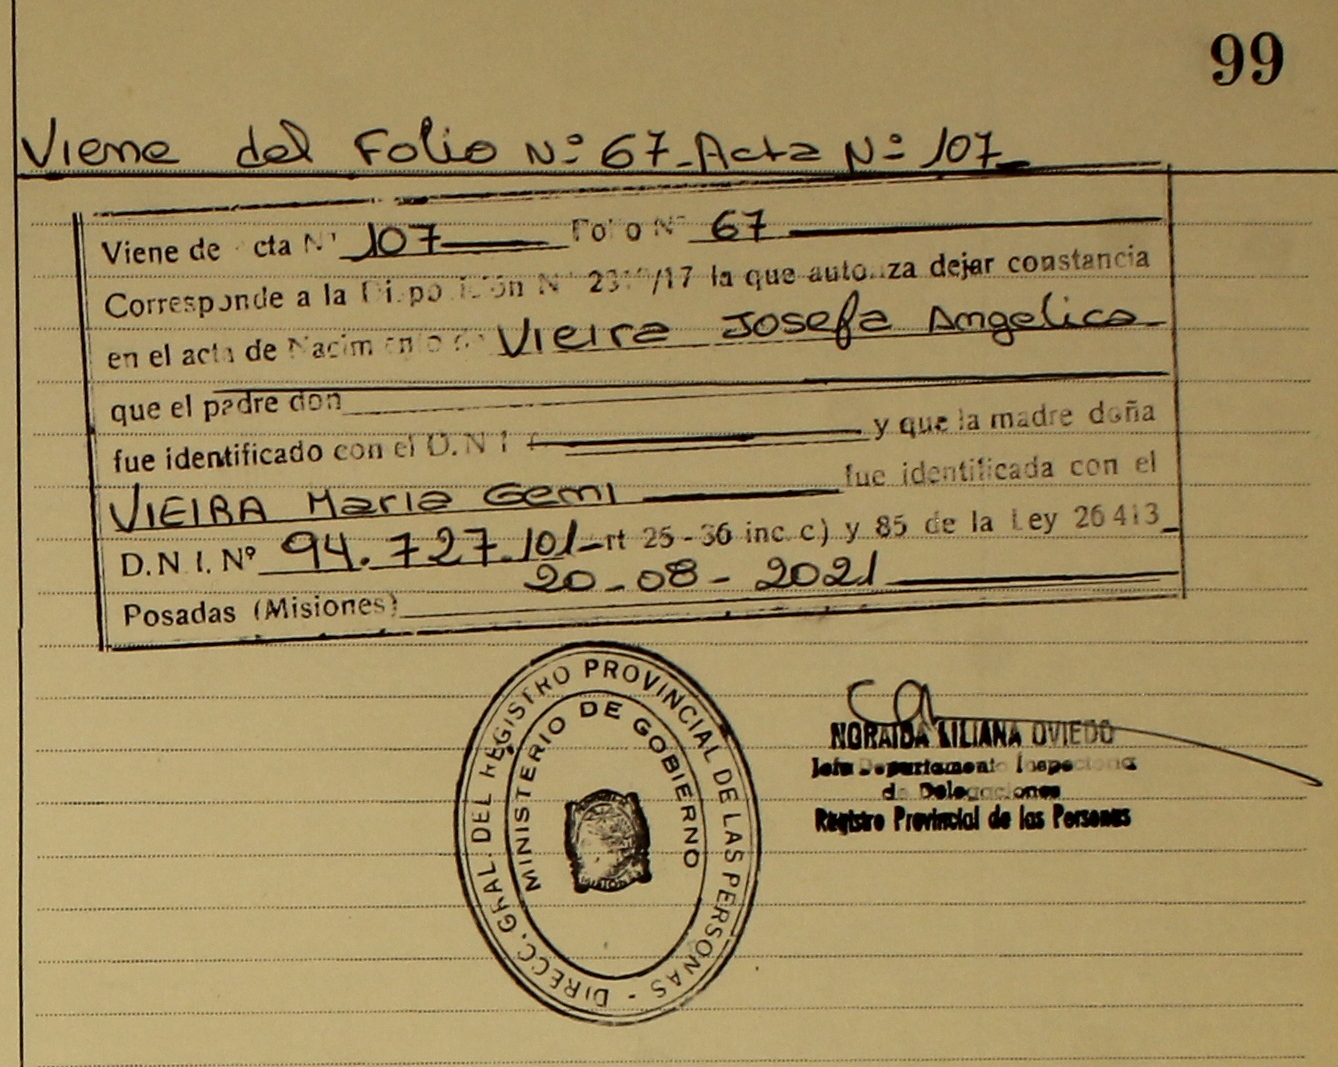 99
Viene del Folio Nº 67-Acta Nº 107
Viene de cta Nº 107 Folio Nº 67
Corresponde a la Disposición Nº /17 la que autoriza dejar constancia
en el acta de Nacimiento de Vieira Josefa Angelica
que el padre don
fue identificado con el D.N.I. y que la madre doña
VIEIRA Maria Gemi fue identificada con el
D.N.I. Nº 94.727.101 rt 25-36 inc. c) y 85 de la Ley 26 413
20-08-2021
Posadas (Misiones)
DIRECC. GRAL. DEL REGISTRO PROVINCIAL DE LAS PERSONAS -
MINISTERIO DE GOBIERNO
NORAIDA LILIANA OVIEDO
Jefa Departamento Inspecciona
de Delegaciones
Registro Provincial de las Personas